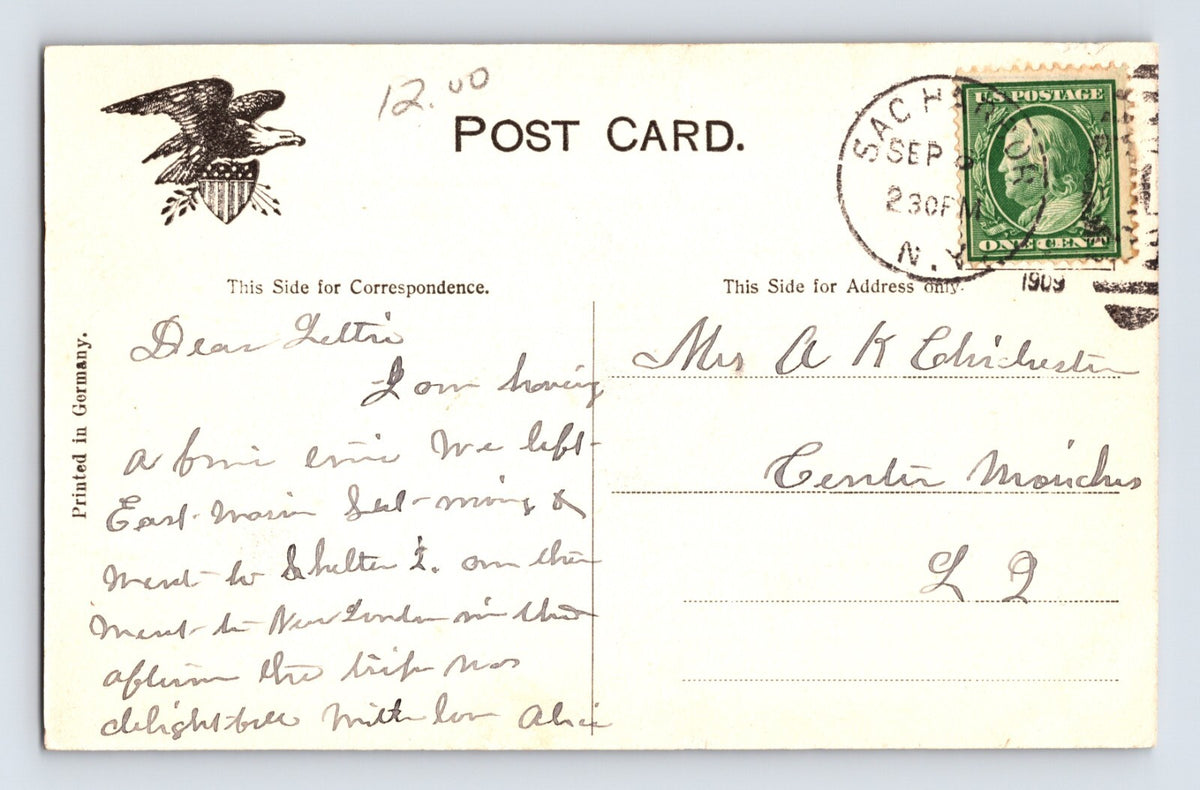 12.00
POST CARD.
SAG HARBOR
SEP
230PM
N.Y.
1909
U.S. POSTAGE
ONE CENT
This Side for Correspondence.
This Side for Address only.
Printed in Germany.
Dear Lettie
I am having
a fine time We left
East Marion Sat-morning &
went to Shelter I. on then
went to New London in the
afternoon the trip was
delightfull with love Alice
Mrs A K Chichester
Center Moriches
L I